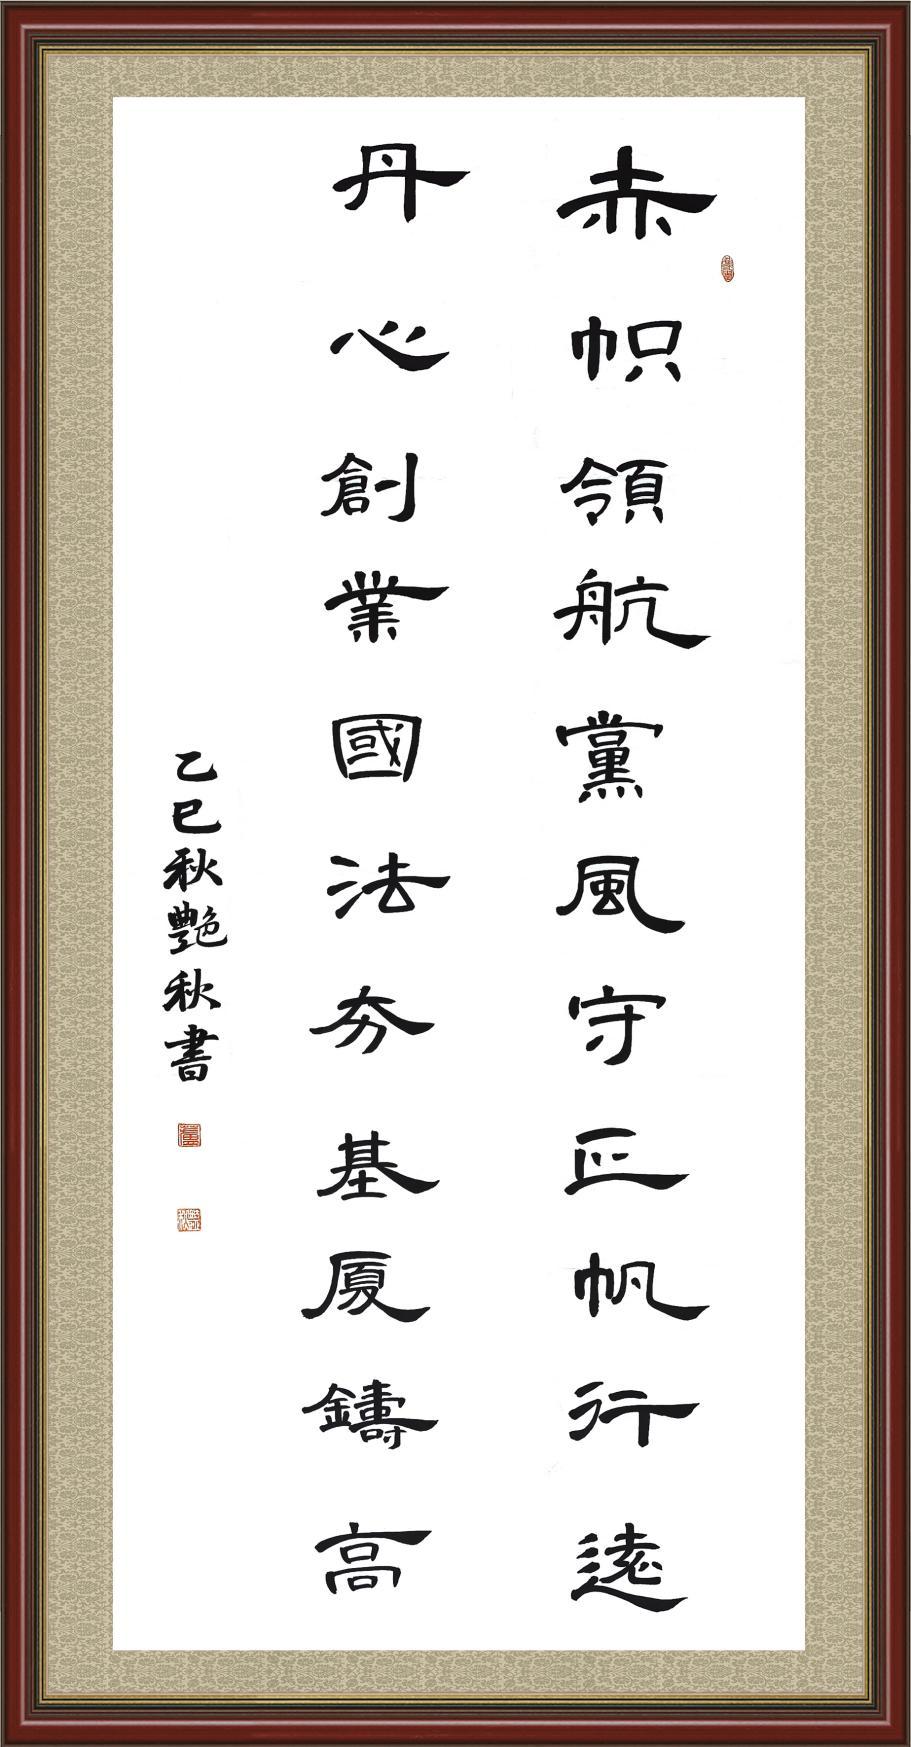 赤帜領航黨風守正帆行遠
丹心創業國法夯基厦鑄高
乙巳秋艷秋書